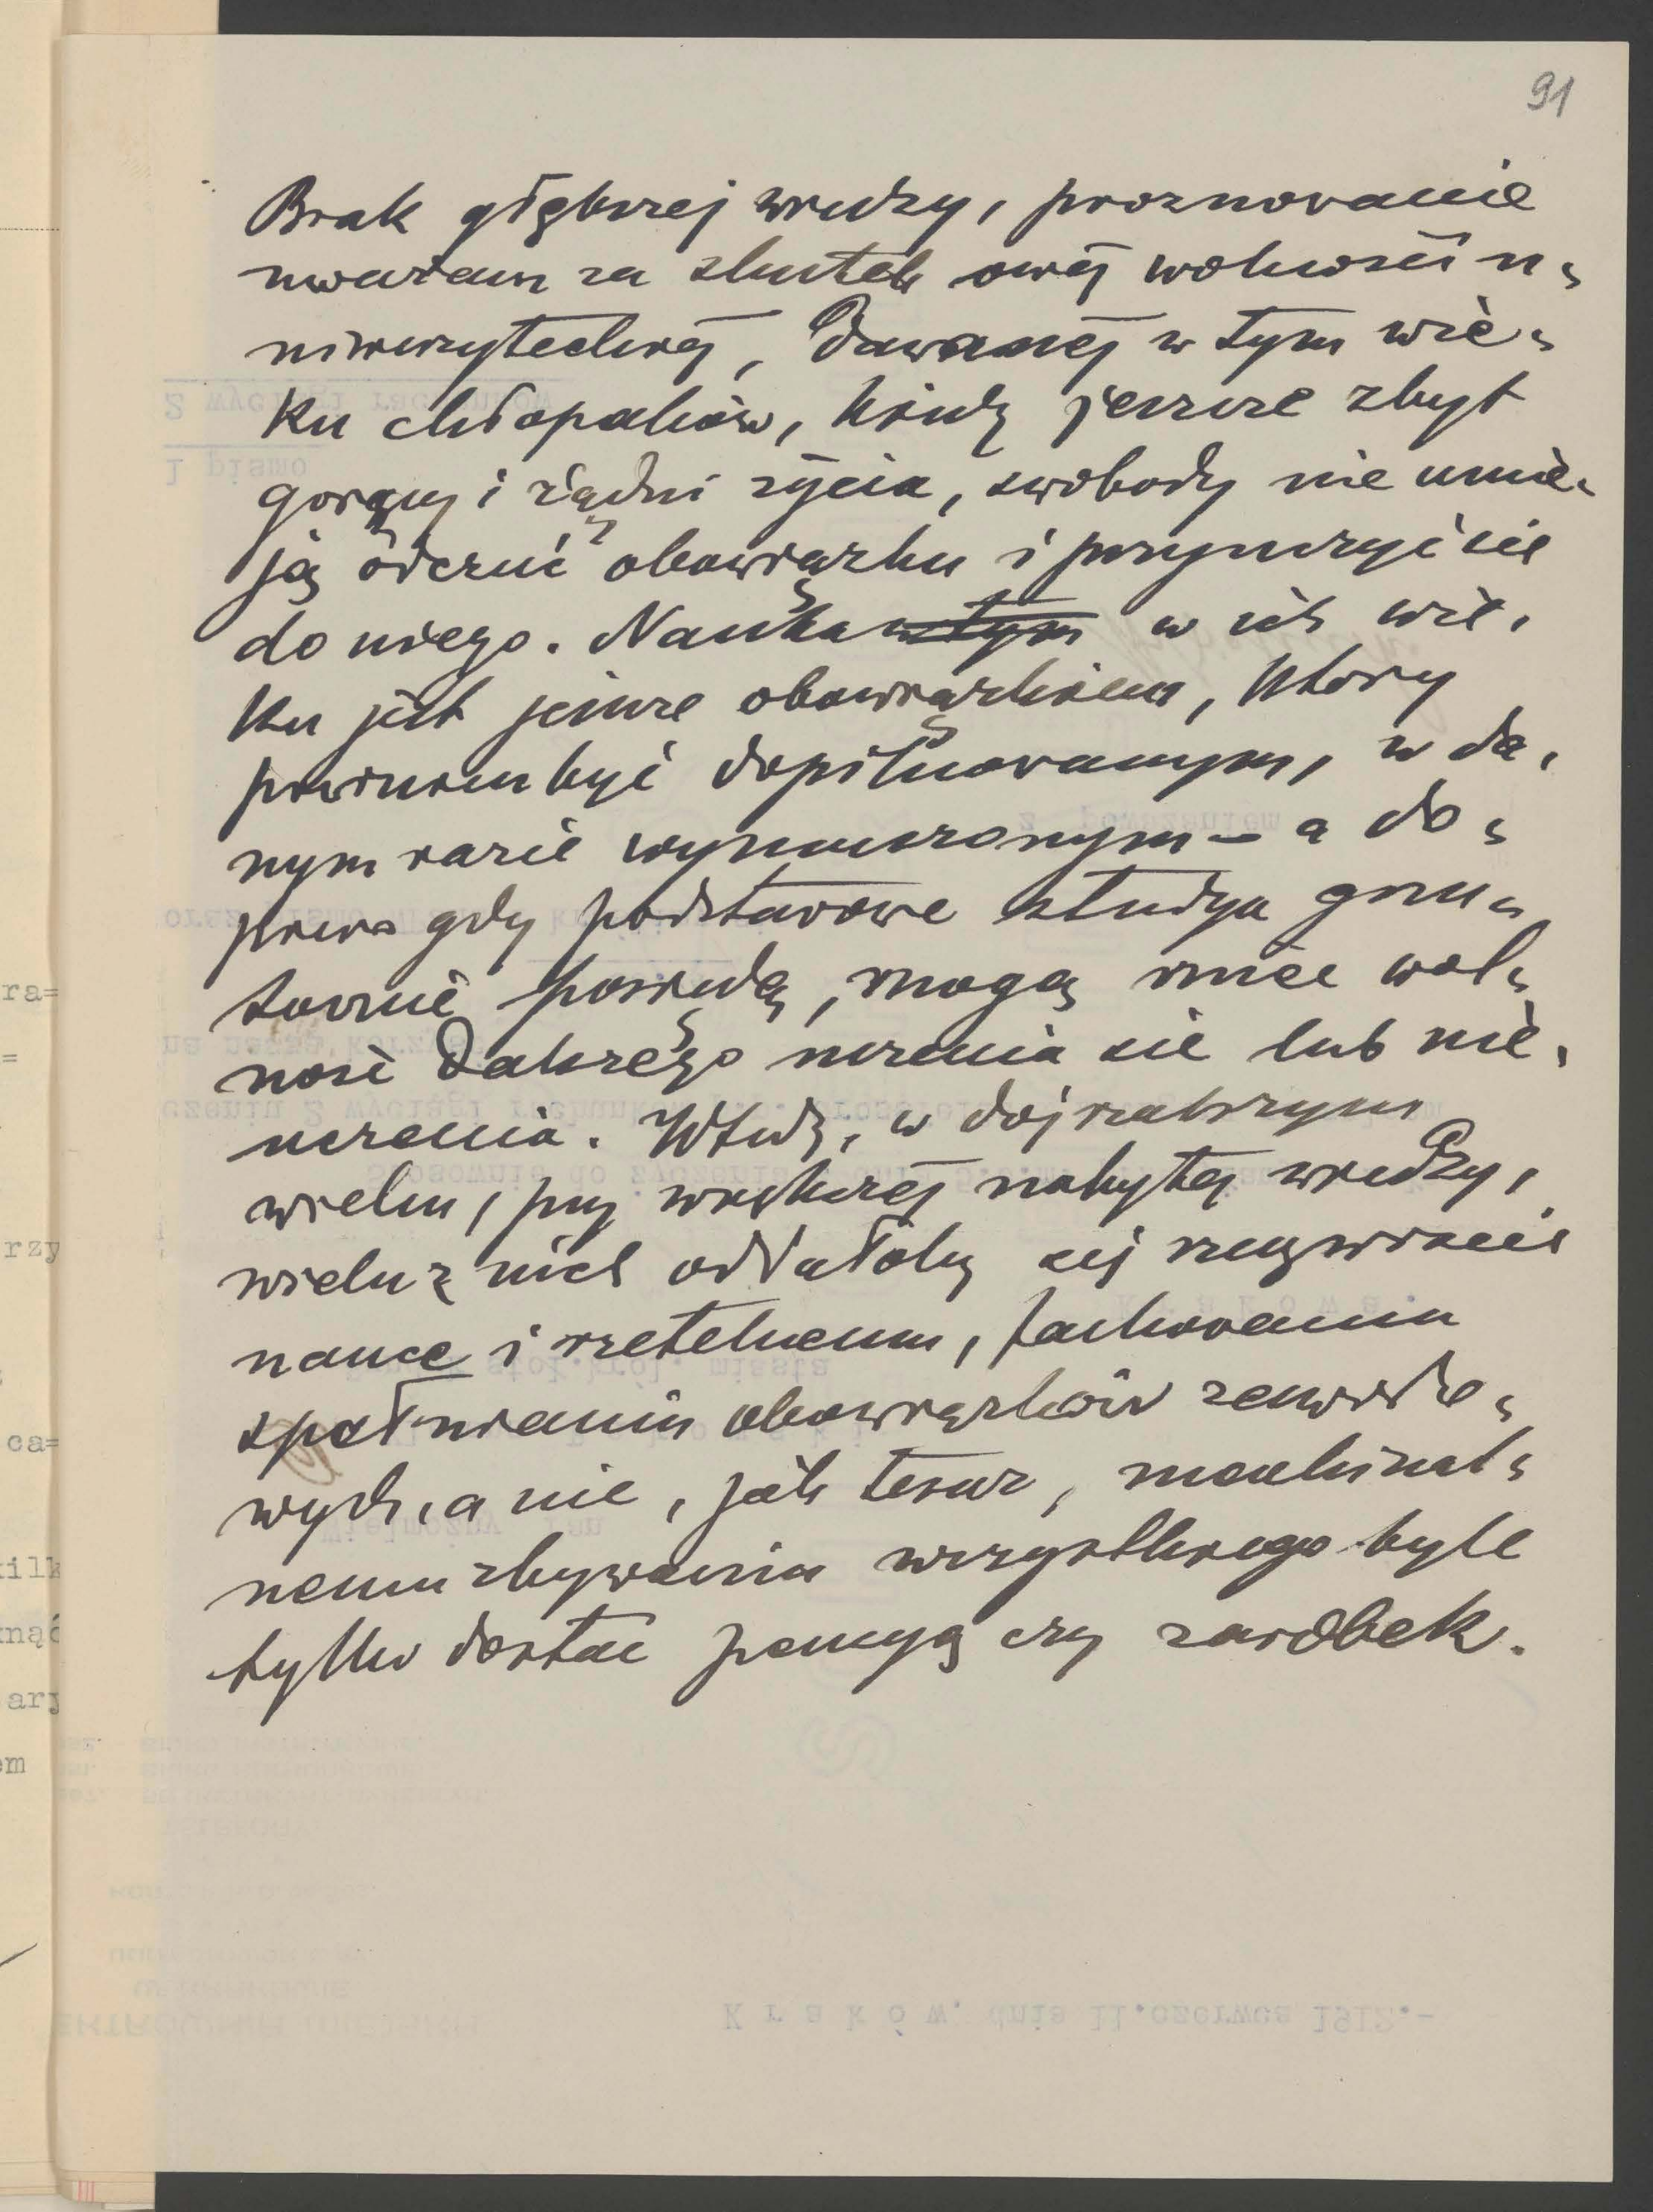 91
Brak głębszej wiedzy, proznowanie
uważam za skutek owej wolności u=
niwersyteckiej, dawanej w tym wie=
ku chłopaków, kiedy jeszcze zbyt
gorący i rządni życia, swobody nie umie=
ją ocenić obowiązku i przymusić się
do niego. Nauka w tym w ich wie=
ku jest jeszcze obowiązkiem, ktory
powinien być dopilnowanym, w da=
nym razie wymuszonym – a do=
piero gdy podstawowe studya grun=
townie posiedą, mogą mieć wol=
ność dalszego uczenia się lub nie=
uczenia. Wtedy, w dojrzalszym
wieku, przy większej nabytej wiedzy,
wielu z nich oddałoby się rzeczywiscie
nauce i rzetelnemu, fachowemu
spełnianiu obowiązków zawodo=
wych, a nie, jak teraz, machinal=
nemu zbywaniu wszystkiego byle
tylko dostać pensyą czy zarobek.